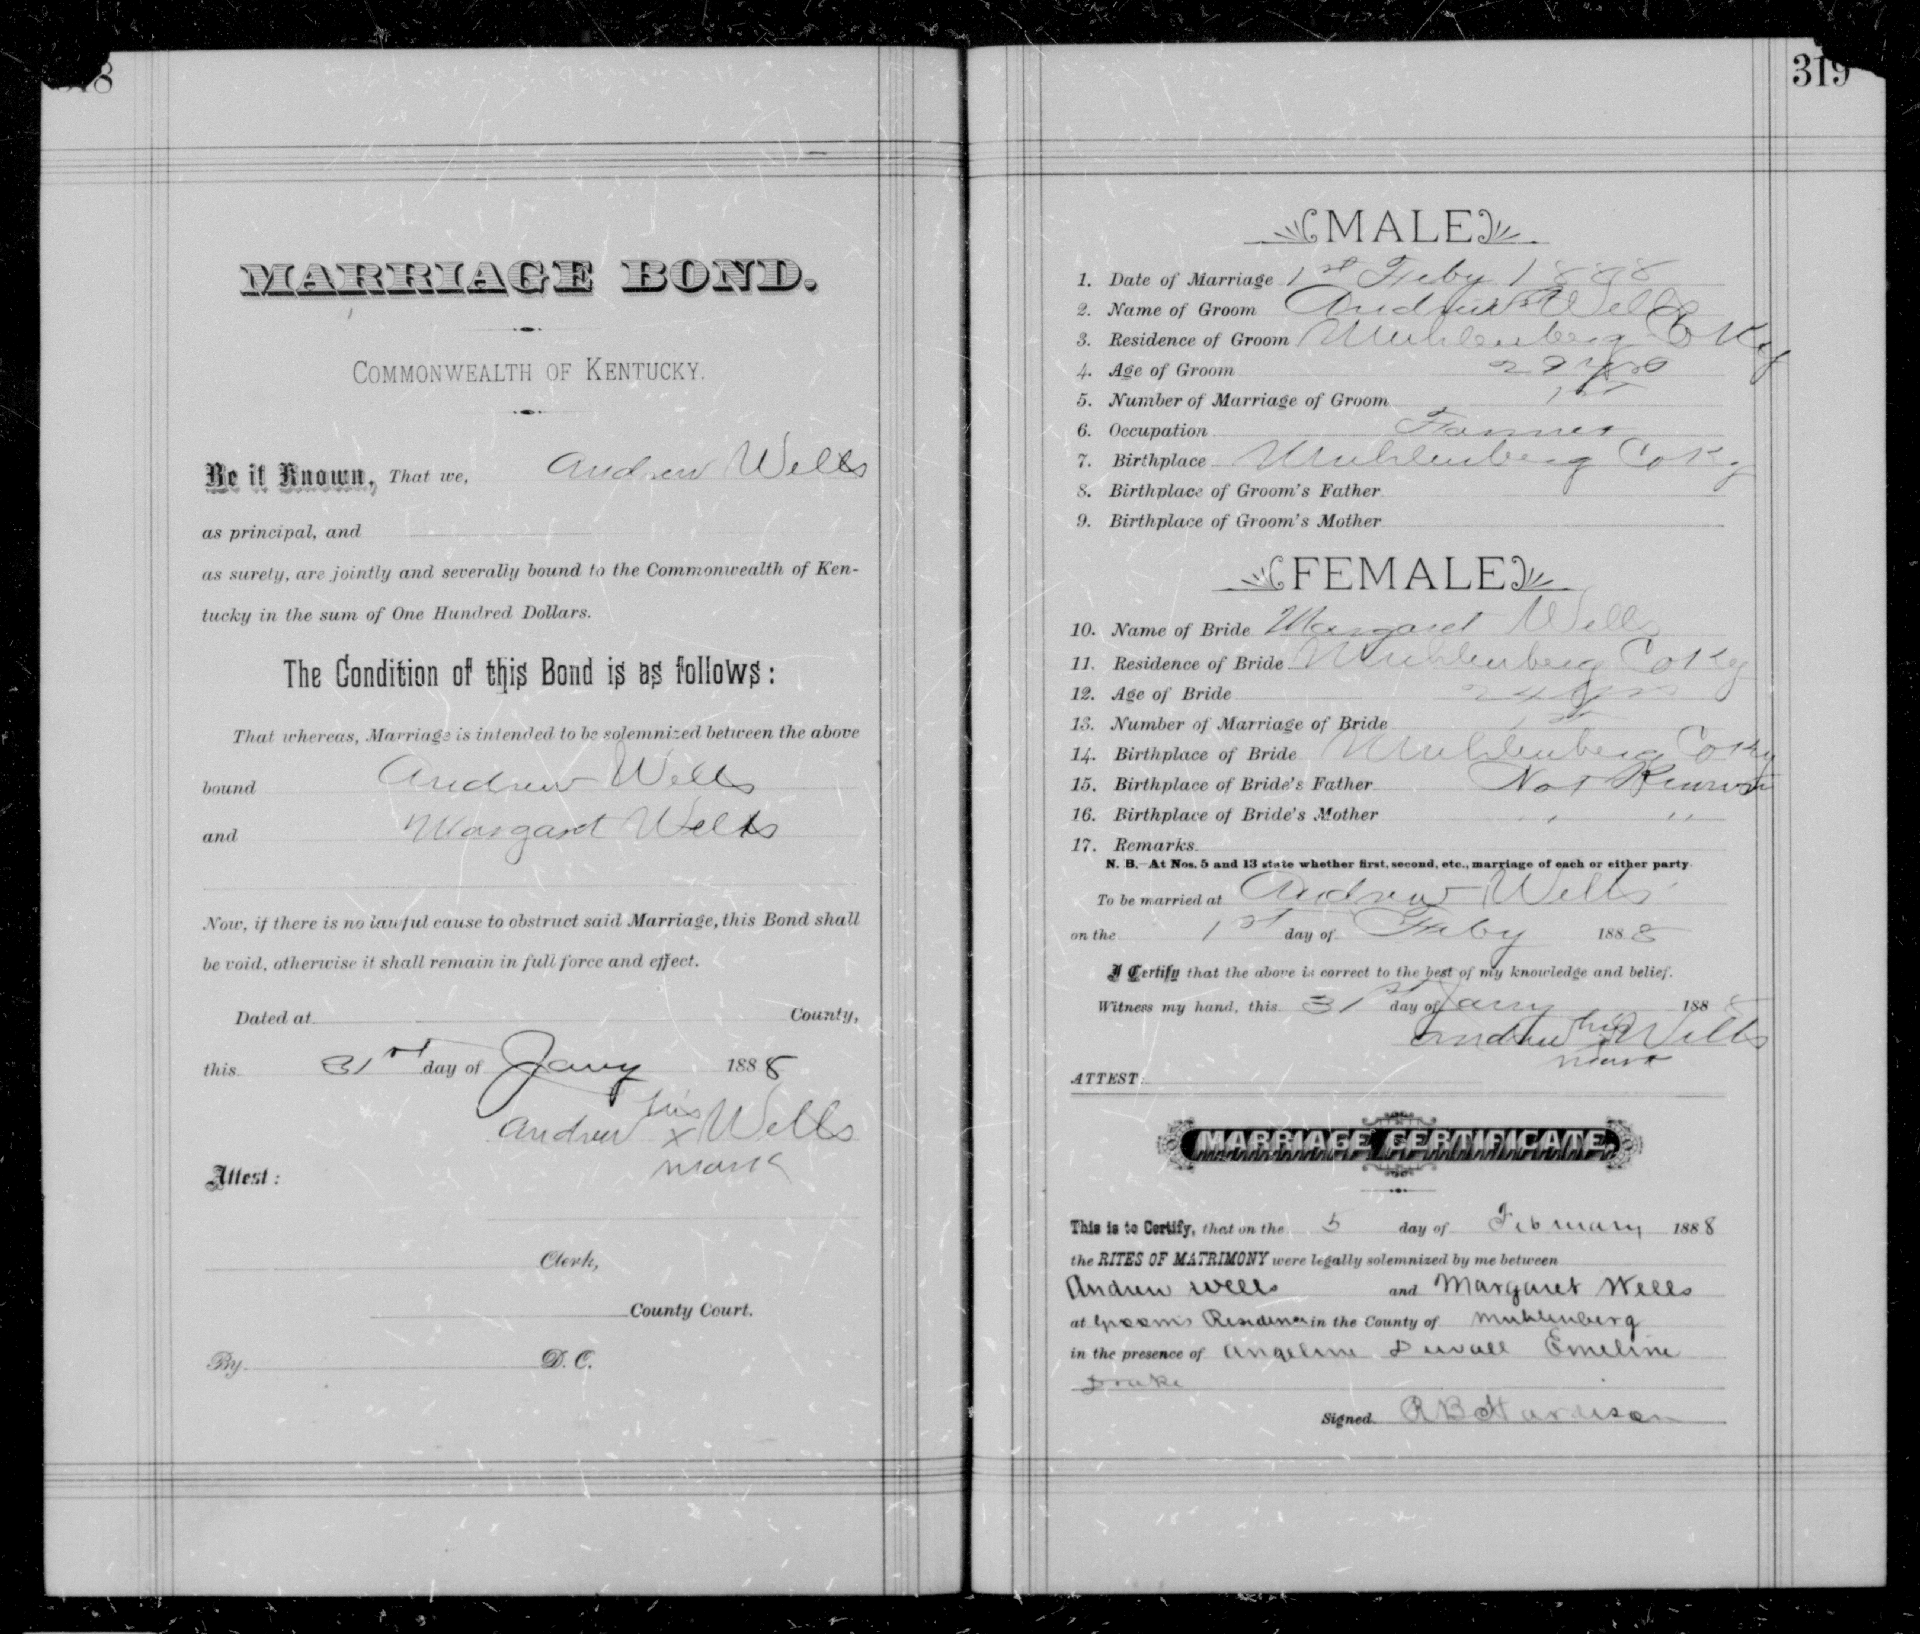 8
MARRIAGE BOND.
COMMONWEALTH OF KENTUCKY.
Be it Known, That we, Andrew Wells
as principal, and
as surety, are jointly and severally bound to the Commonwealth of Ken-
tucky in the sum of One Hundred Dollars.
The Condition of this Bond is as follows:
That whereas, Marriage is intended to be solemnized between the above
bound Andrew Wells
and Margaret Wells
Now, if there is no lawful cause to obstruct said Marriage, this Bond shall
be void, otherwise it shall remain in full force and effect.
Dated at County,
this 31st day of Jany 1888
his
Andrew x Wells
mark
Attest:
Clerk,
County Court.
By D. C.
319
MALE
1. Date of Marriage 1st Feby 1888
2. Name of Groom Andrew Wells
3. Residence of Groom Muhlenberg Co Ky
4. Age of Groom yrs
5. Number of Marriage of Groom 1st
6. Occupation Farmer
7. Birthplace Muhlenberg Co Ky
8. Birthplace of Groom's Father
9. Birthplace of Groom's Mother
FEMALE
10. Name of Bride Margaret Wells
11. Residence of Bride Muhlenberg Co Ky
12. Age of Bride 24 yrs
13. Number of Marriage of Bride 1st
14. Birthplace of Bride Muhlenberg Co Ky
15. Birthplace of Bride's Father Not Known
16. Birthplace of Bride's Mother " "
17. Remarks
N. B.—At Nos. 5 and 13 state whether first, second, etc., marriage of each or either party
To be married at Andrew Wells
on the 1st day of Feby 1888
I Certify that the above is correct to the best of my knowledge and belief.
Witness my hand, this 31st day of Jany 1888
Andrew his Wells
mark
ATTEST:
MARRIAGE CERTIFICATE.
This is to Certify, that on the 5 day of February 1888
the RITES OF MATRIMONY were legally solemnized by me between
Andrew Wells and Margaret Wells
at Grooms Residence in the County of Muhlenberg
in the presence of Angeline Duvall Emeline
Drake
Signed. R B Hardison